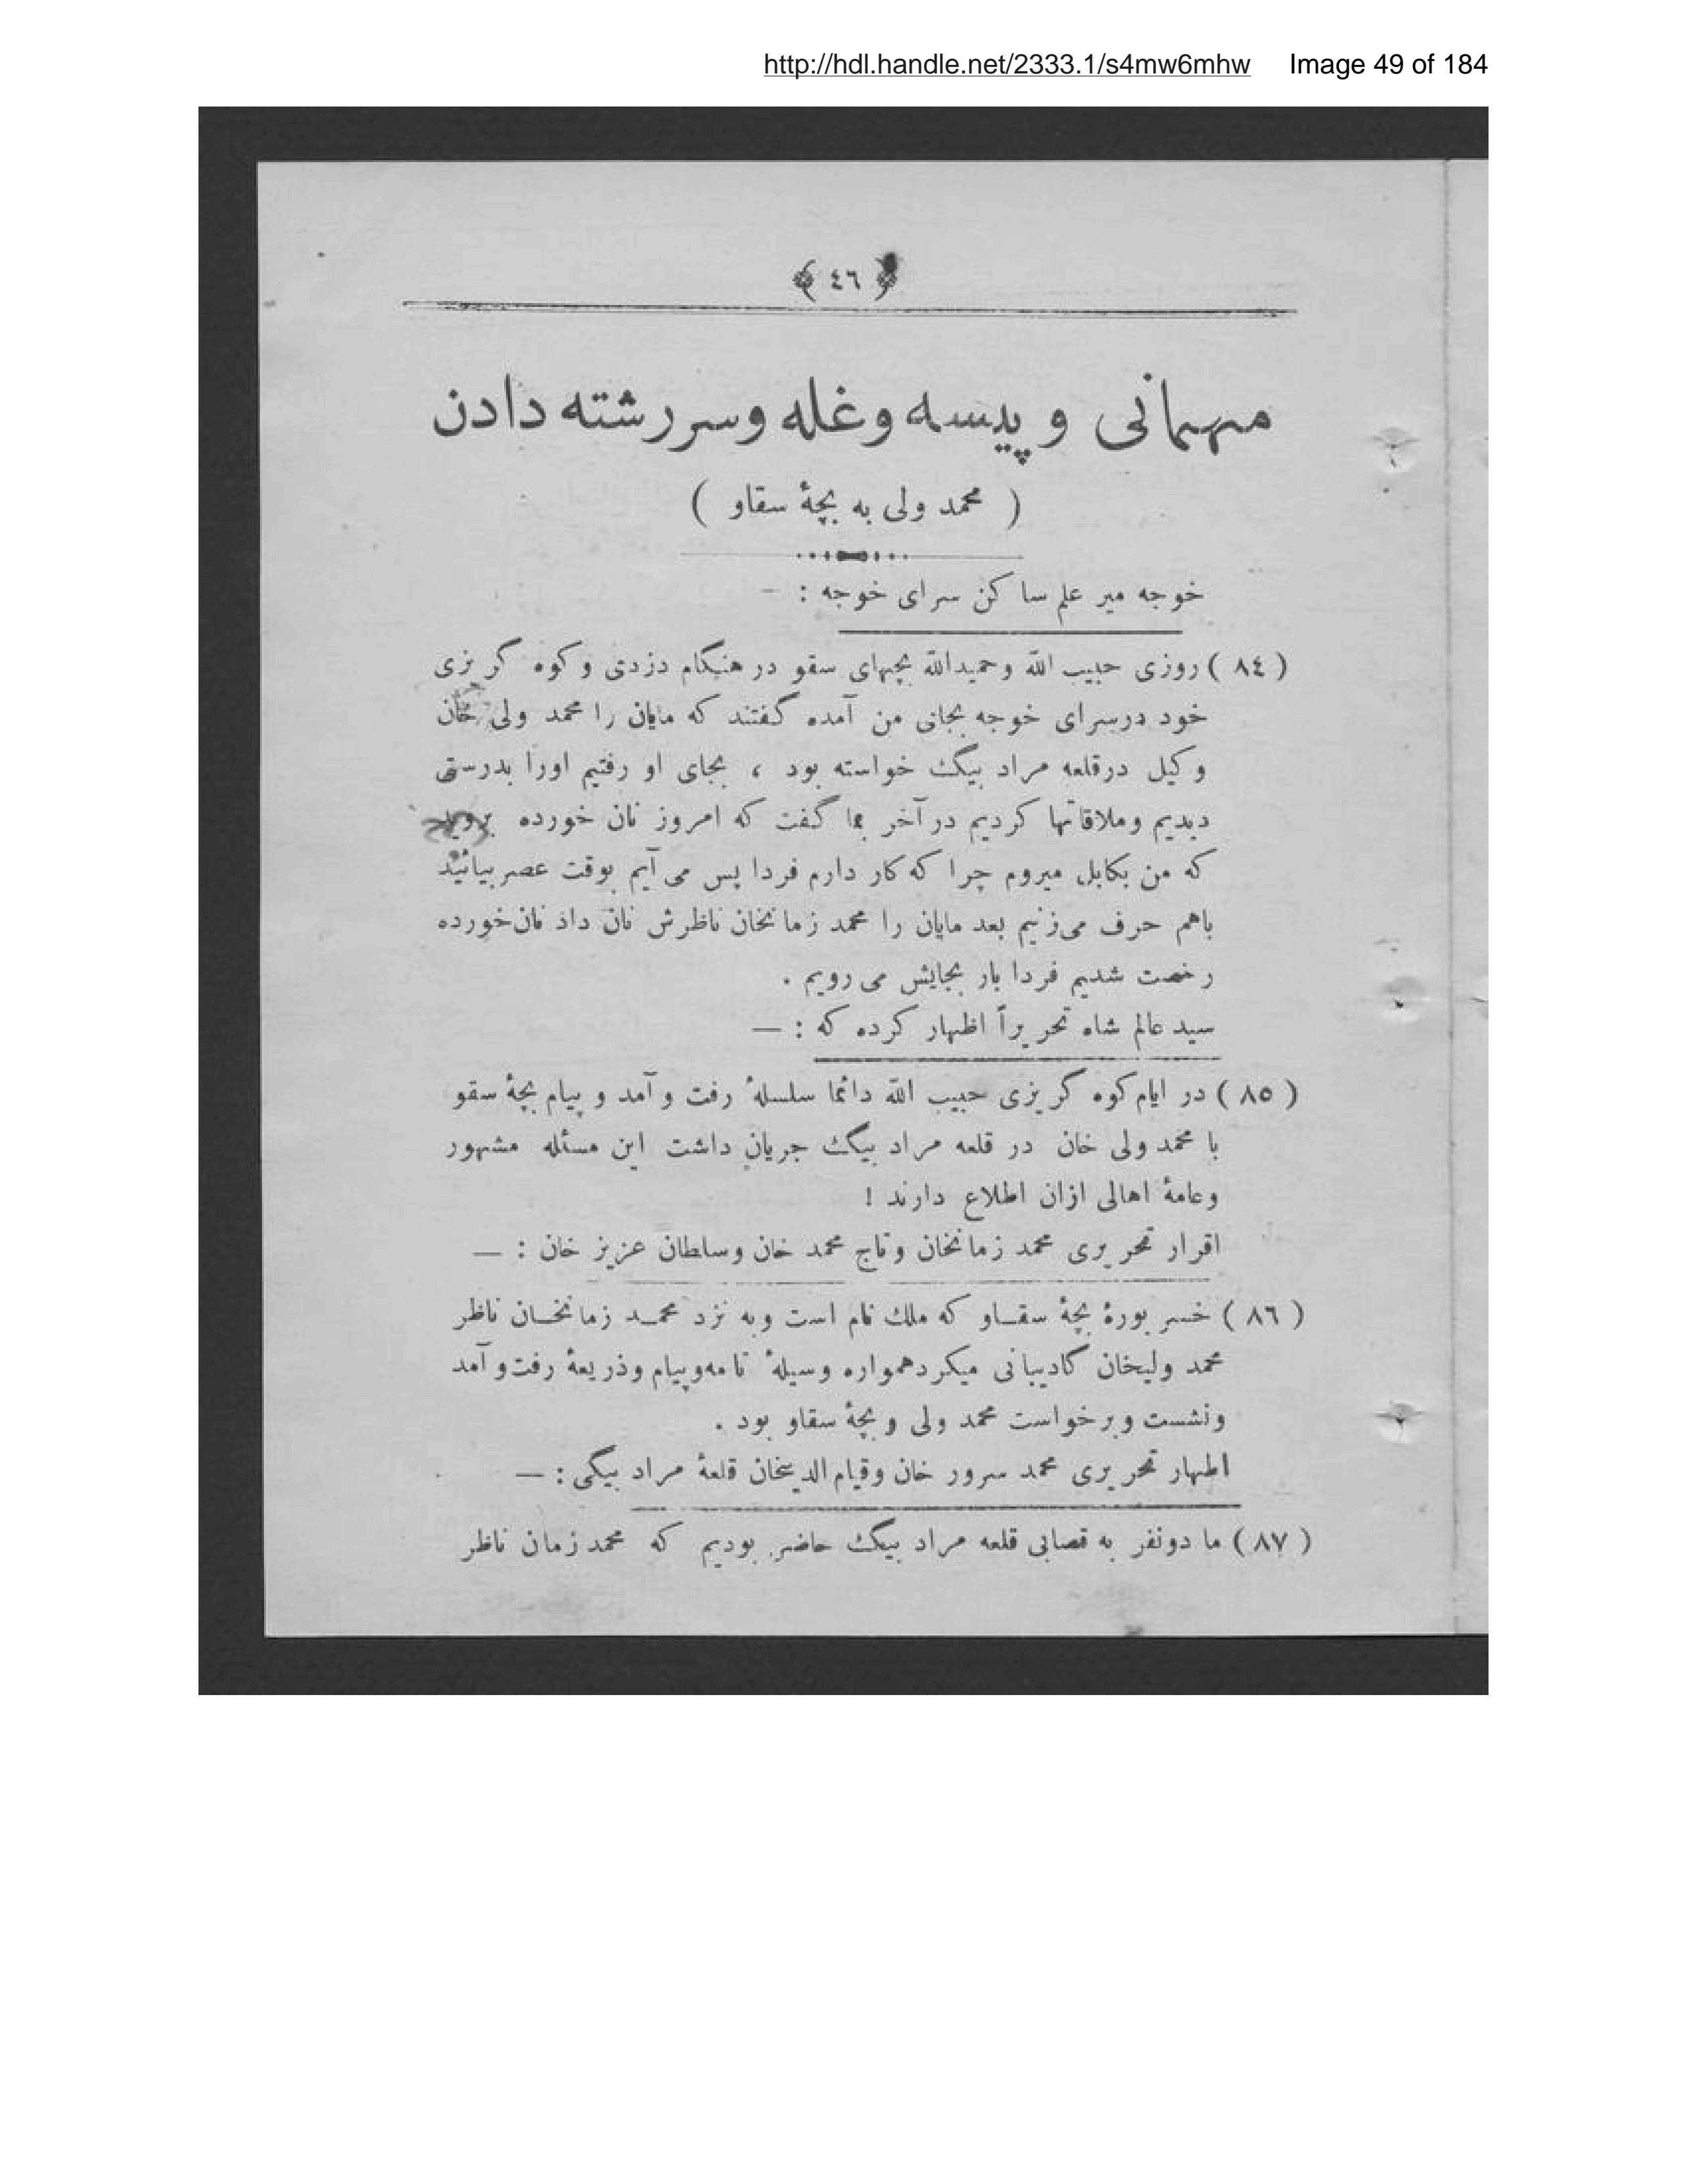 http://hdl.handle.net/2333.1/s4mw6mhw Image 49 of 184
﴿ ٤٦ ﴾
مهمانی و پیسه وغله وسررشته دادن
( محمد ولی به بچۀ سقاو )
خوجه میر علم ساکن سرای خوجه : –
( ٨٤ ) روزی حبیب الله وحمیدالله بچهای سقو در هنگام دزدی وکوه گریزی
خود درسرای خوجه بجانی من آمده گفتند که مایان را محمد ولی خان
وکیل درقلعه مراد بیگ خواسته بود ، بجای او رفتیم اورا بدرستی
دیدیم وملاقاتها کردیم در آخر بما گفت که امروز نان خورده بروید
که من بکابل میروم چرا که کار دارم فردا پس می آیم بوقت عصر بیائید
باهم حرف می‌زنیم بعد مایان را محمد زمانخان ناظرش نان داد نان خورده
رخصت شدیم فردا بار بجایش می رویم .
سید عالم شاه تحریراً اظهار کرده که : —
( ٨٥ ) در ایام کوه گریزی حبیب الله دائما سلسلۀ رفت و آمد و پیام بچۀ سقو
با محمد ولی خان در قلعه مراد بیگ جریان داشت این مسئله مشهور
وعامۀ اهالی ازان اطلاع دارند !
اقرار تحریری محمد زمانخان وتاج محمد خان وسلطان عزیز خان : —
( ٨٦ ) خسر بورۀ بچۀ سقاو که ملك نام است وبه نزد محمد زمانخان ناظر
محمد ولیخان کادیبانی میکرد همواره وسیلۀ نامه وپیام وذریعۀ رفت و آمد
ونشست وبرخواست محمد ولی و بچۀ سقاو بود .
اظهار تحریری محمد سرور خان وقیام الدینخان قلعۀ مراد بیگی : —
( ٨٧ ) ما دونفر به قصابی قلعه مراد بیگ حاضر بودیم که محمد زمان ناظر